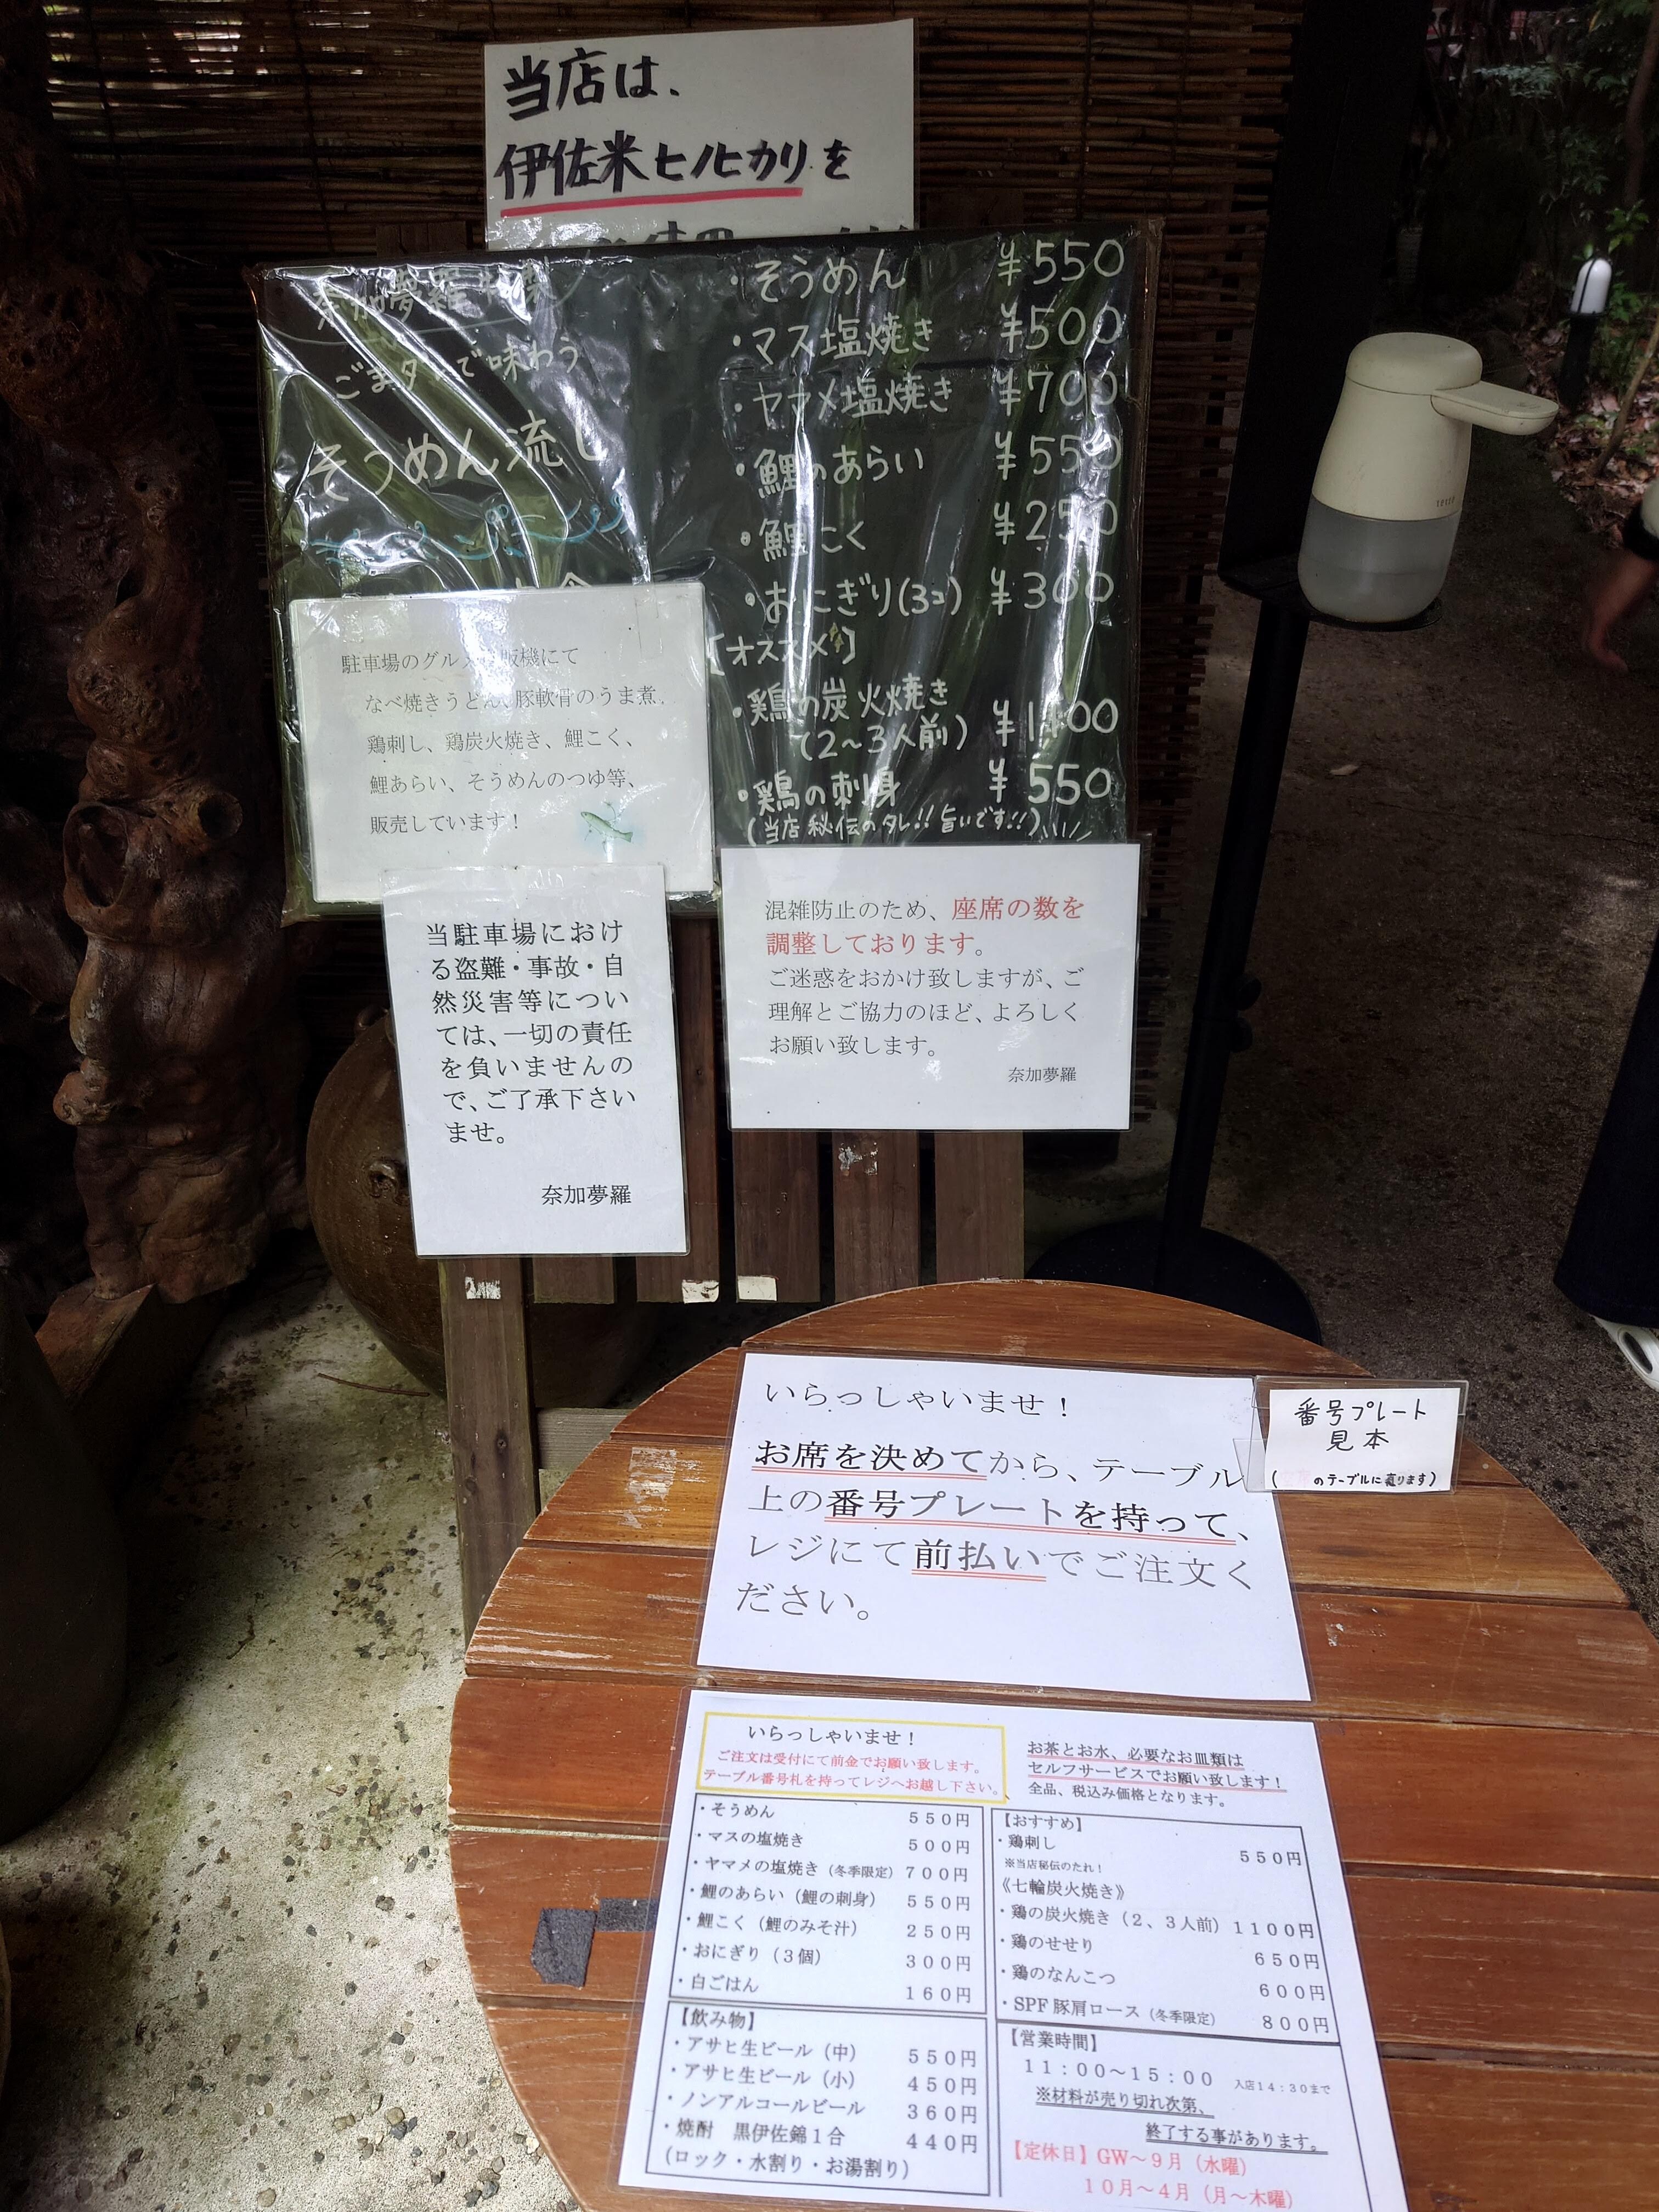 当店は、
伊佐米ヒノヒカリを
奈加夢羅
ごまダレで味わう
そうめん流し
・そうめん ¥550
・マス塩焼き ¥500
・ヤマメ塩焼き ¥700
・鯉のあらい ¥550
・鯉こく ¥250
・おにぎり(3コ) ¥300
[オススメ]
・鶏の炭火焼き
(2〜3人前) ¥1100
・鶏の刺身 ¥550
(当店秘伝のタレ!! 旨いです!!)
駐車場のグルメ販機にて
なべ焼きうどん、豚軟骨のうま煮、
鶏刺し、鶏炭火焼き、鯉こく、
鯉あらい、そうめんのつゆ等、
販売しています！
当駐車場におけ
る盗難・事故・自
然災害等につい
ては、一切の責任
を負いませんの
で、ご了承下さい
ませ。
奈加夢羅
混雑防止のため、座席の数を
調整しております。
ご迷惑をおかけ致しますが、ご
理解とご協力のほど、よろしく
お願い致します。
奈加夢羅
いらっしゃいませ！
お席を決めてから、テーブル
上の番号プレートを持って、
レジにて前払いでご注文く
ださい。
番号プレート
見本
(のテーブルに有ります)
いらっしゃいませ！
ご注文は受付にて前金でお願い致します。
テーブル番号札を持ってレジへお越し下さい。
お茶とお水、必要なお皿類は
セルフサービスでお願い致します！
全品、税込み価格となります。
・そうめん 550円
・マスの塩焼き 500円
・ヤマメの塩焼き（冬季限定） 700円
・鯉のあらい（鯉の刺身） 550円
・鯉こく（鯉のみそ汁） 250円
・おにぎり（3個） 300円
・白ごはん 160円
【飲み物】
・アサヒ生ビール（中） 550円
・アサヒ生ビール（小） 450円
・ノンアルコールビール 360円
・焼酎 黒伊佐錦1合 440円
（ロック・水割り・お湯割り）
【おすすめ】
・鶏刺し 550円
※当店秘伝のたれ！
《七輪炭火焼き》
・鶏の炭火焼き（2、3人前） 1100円
・鶏のせせり 650円
・鶏のなんこつ 600円
・SPF豚肩ロース（冬季限定） 800円
【営業時間】
11：00～15：00 入店14：30まで
※材料が売り切れ次第、
終了する事があります。
【定休日】GW～9月（水曜）
10月～4月（月～木曜）